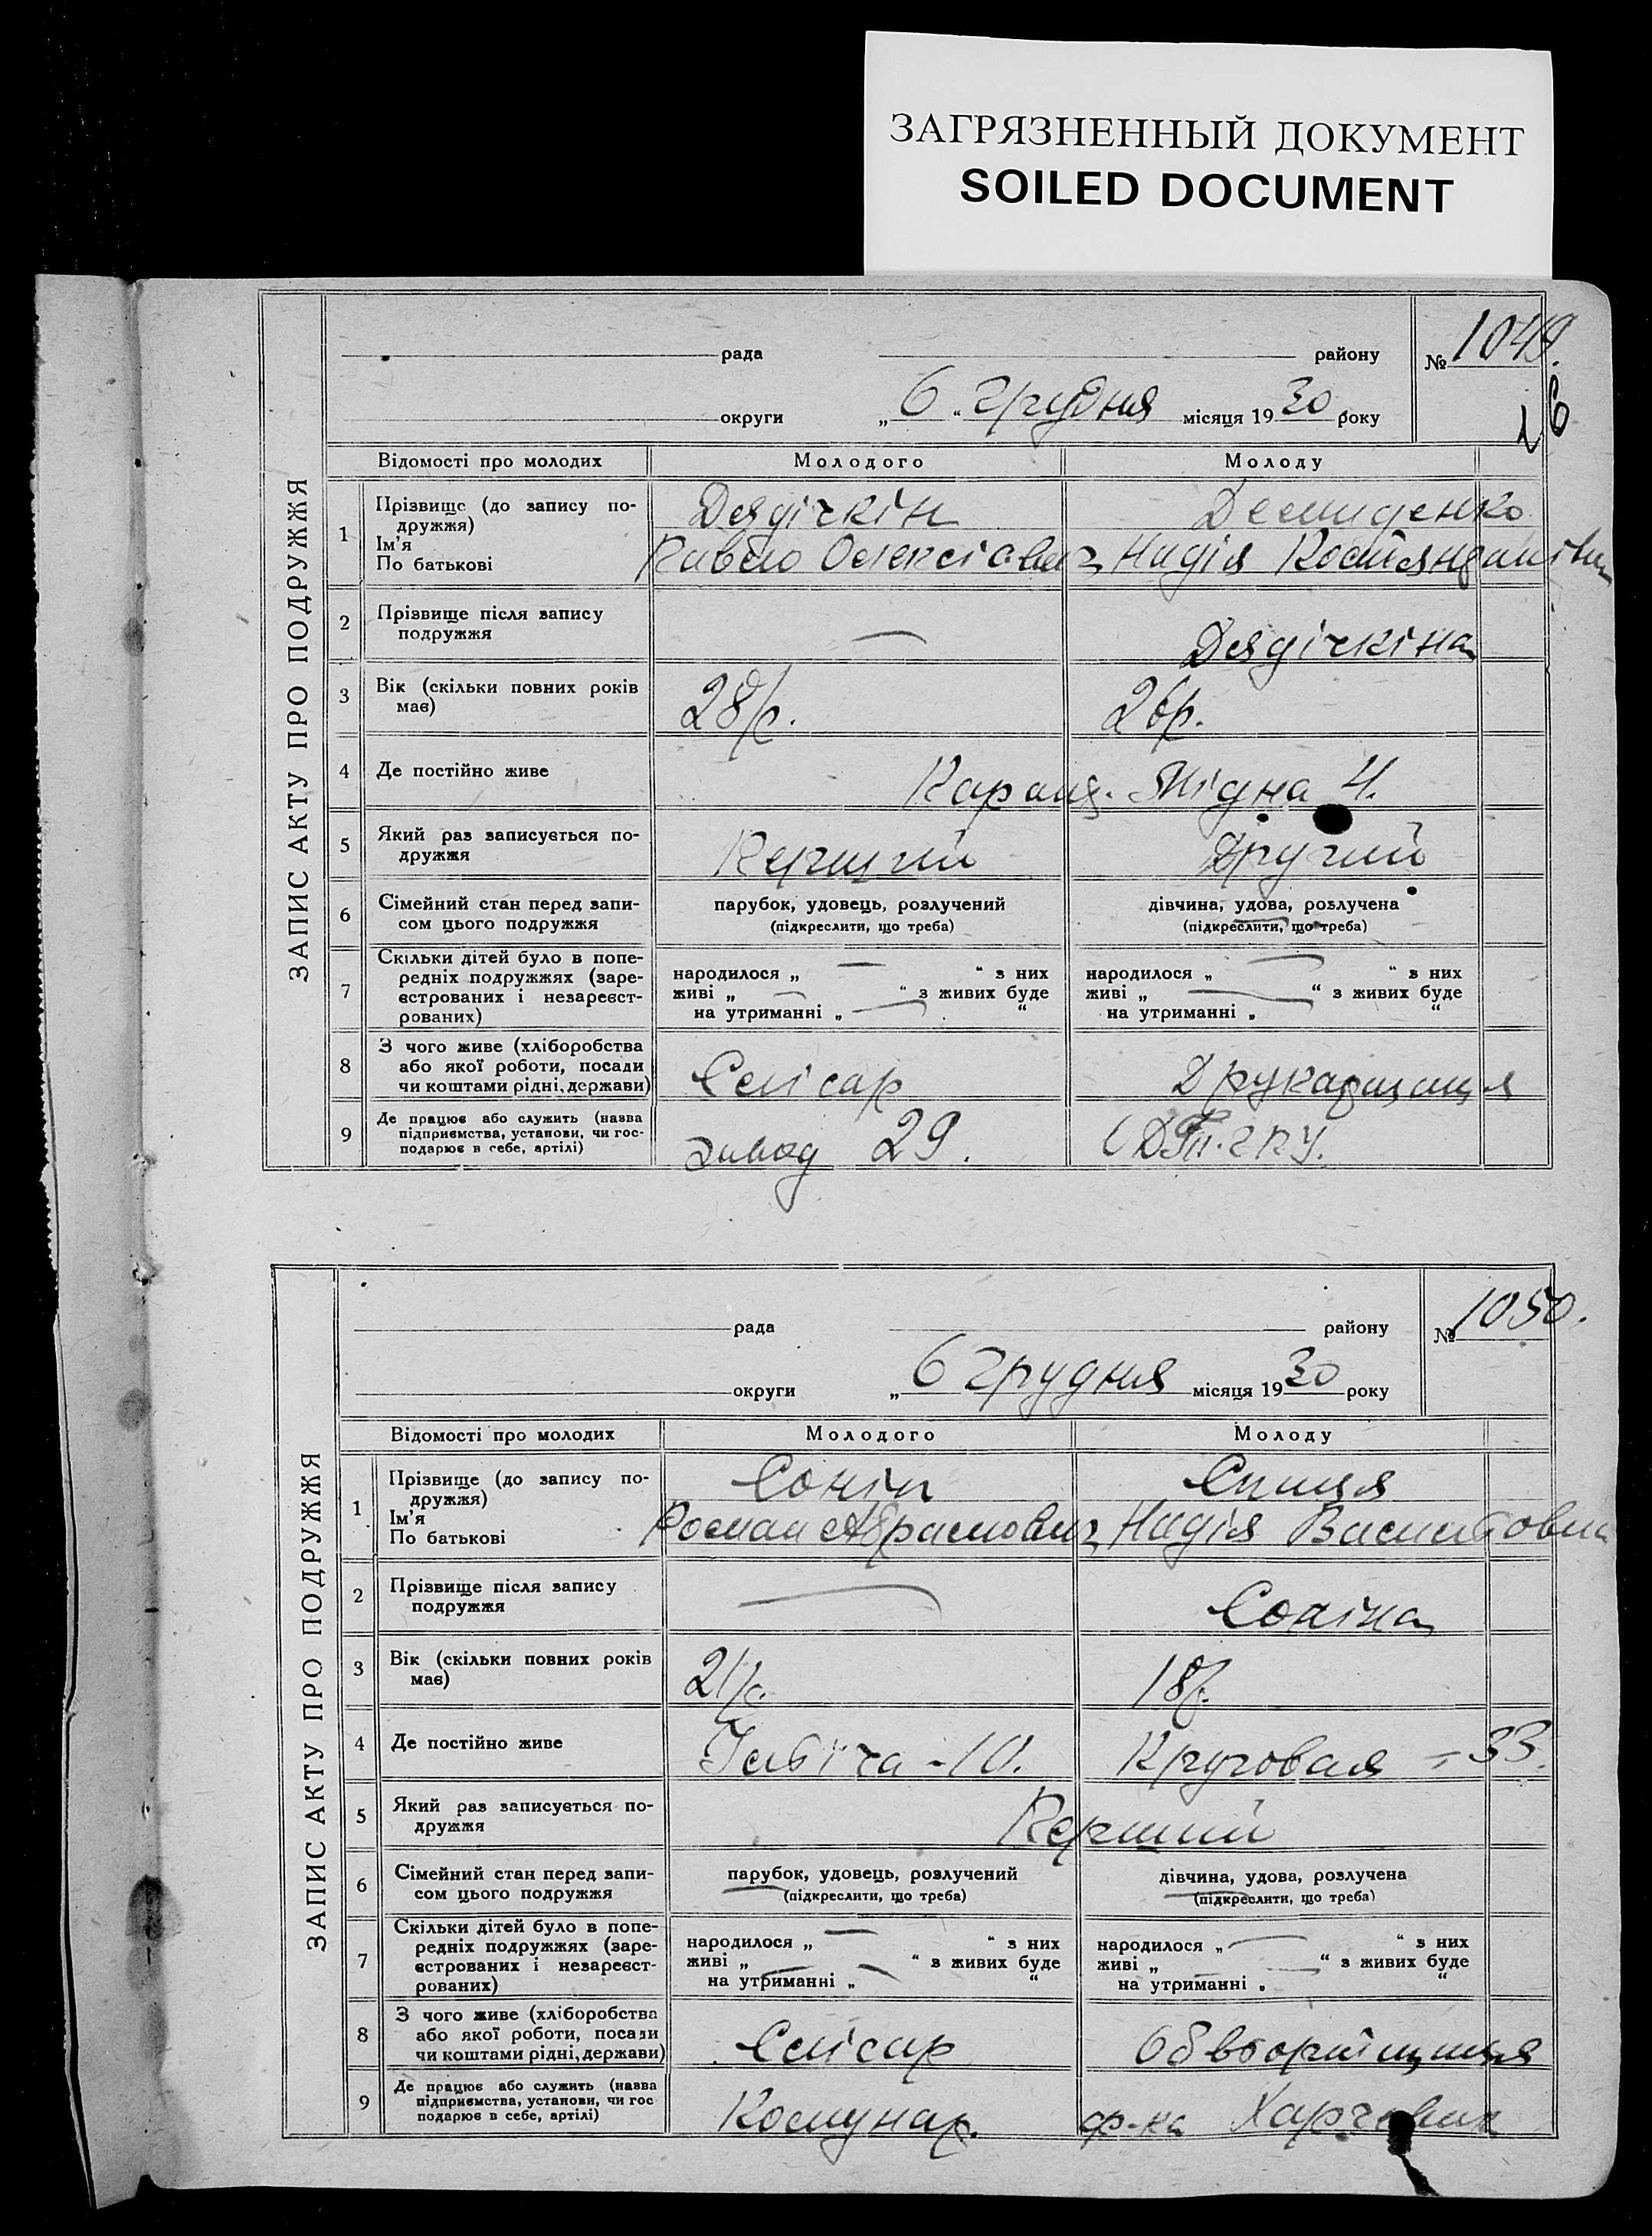 ЗАГРЯЗНЕННЫЙ ДОКУМЕНТ
SOILED DOCUMENT
ЗАПИС АКТУ ПРО ПОДРУЖЖЯ
рада району № 1049.
округи „ 6 “ грудня місяця 19 30 року
16
Відомості про молодих Молодого Молоду
1 Прізвище (до запису подружжя) Дядічкін Демиденко
Ім'я
По батькові Павло Олексієвич Надія Костянтинівна
2 Прізвище після запису подружжя — Дядічкіна
3 Вік (скільки повних років має) 28 р. 26 р.
4 Де постійно живе 4.
5 Який раз записується подружжя Перший Другий
6 Сімейний стан перед записом цього подружжя парубок, удовець, розлучений дівчина, удова, розлучена
(підкреслити, що треба) (підкреслити, що треба)
7 Скільки дітей було в попередніх подружжях (зареєстрованих і незареєстрованих)
народилося „ — “ з них народилося „ — “ з них
живі „ — “ з живих буде живі „ — “ з живих буде
на утриманні „ — “ на утриманні „ “
8 З чого живе (хліборобства або якої роботи, посади чи коштами рідні, держави) Слісар Друкарщиця
9 Де працює або служить (назва підприємства, установи, чи господарює в себе, артілі) завод 29.
ЗАПИС АКТУ ПРО ПОДРУЖЖЯ
рада району № 1050.
округи „ 6 грудня місяця 19 30 року
Відомості про молодих Молодого Молоду
1 Прізвище (до запису подружжя) Сонін Спиця
Ім'я
По батькові Роман Абрамович Надія
2 Прізвище після запису подружжя — Соніна
3 Вік (скільки повних років має) 21 р. 18 р.
4 Де постійно живе -10. Круговая - 33.
5 Який раз записується подружжя Перший
6 Сімейний стан перед записом цього подружжя парубок, удовець, розлучений дівчина, удова, розлучена
(підкреслити, що треба) (підкреслити, що треба)
7 Скільки дітей було в попередніх подружжях (зареєстрованих і незареєстрованих)
народилося „ — “ з них народилося „ — “ з них
живі „ — “ з живих буде живі „ — “ з живих буде
на утриманні „ “ на утриманні „ “
8 З чого живе (хліборобства або якої роботи, посади чи коштами рідні, держави) Слісар
9 Де працює або служить (назва підприємства, установи, чи господарює в себе, артілі) Комунар. ф-ка Харчовик